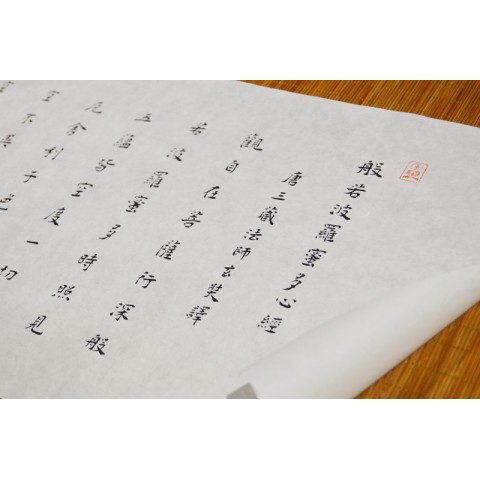 般若波羅蜜多心經
唐三藏法師玄奘譯
觀自在菩薩行深般
若波羅蜜多時照見
五蘊皆空度一切
厄舍利子色
空不異